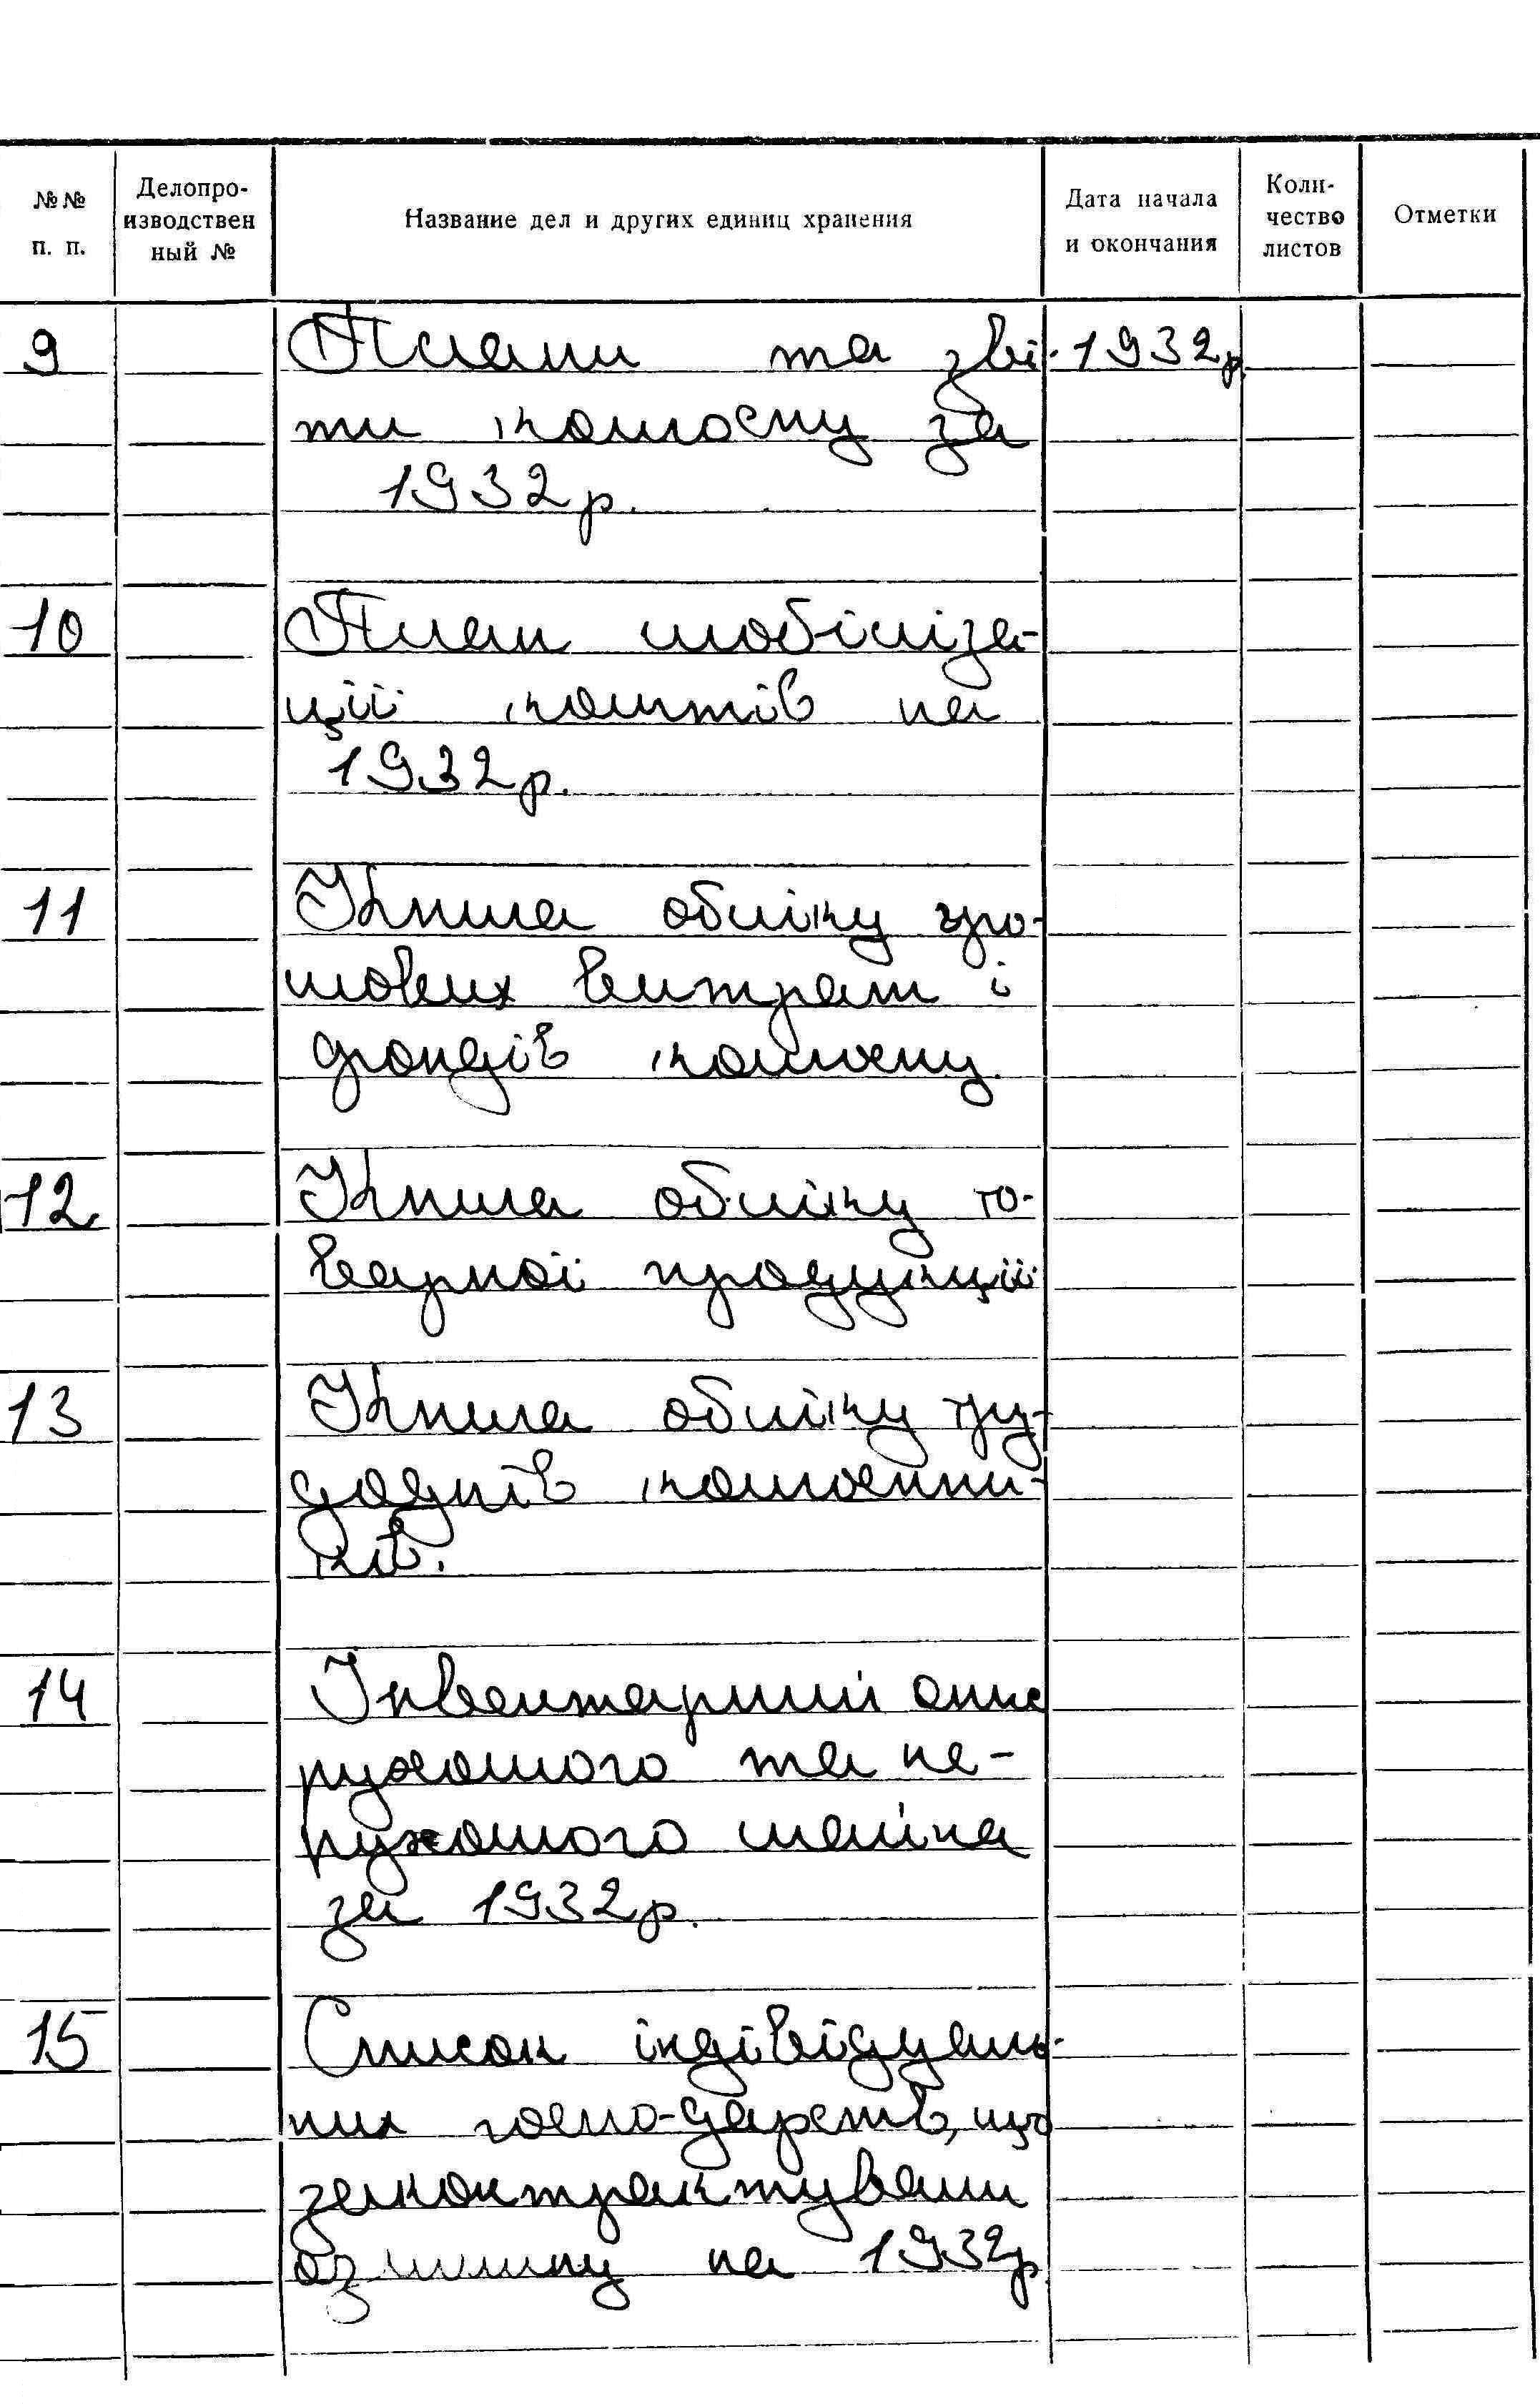 №№ п. п.
Делопро-
изводствен
ный №
Название дел и других единиц хранения
Дата начала
и окончания
Коли-
чество
листов
Отметки
9 Плани та зві- 1932р.
ти колгоспу за
1932р.
10 План мобіліза-
ції коштів на
1932р.
11 Книга обліку гро-
шових витрат і
фондів колгоспу
12 Книга обліку то-
варної продукції
13 Книга обліку тру-
доднів колгоспни-
ків.
14 Інвентарний опис
рухомого та не-
рухомого майна
за 1932р.
15 Список індівідуаль-
них госпо-дарств, що
законтрактували
озимину на 1932р